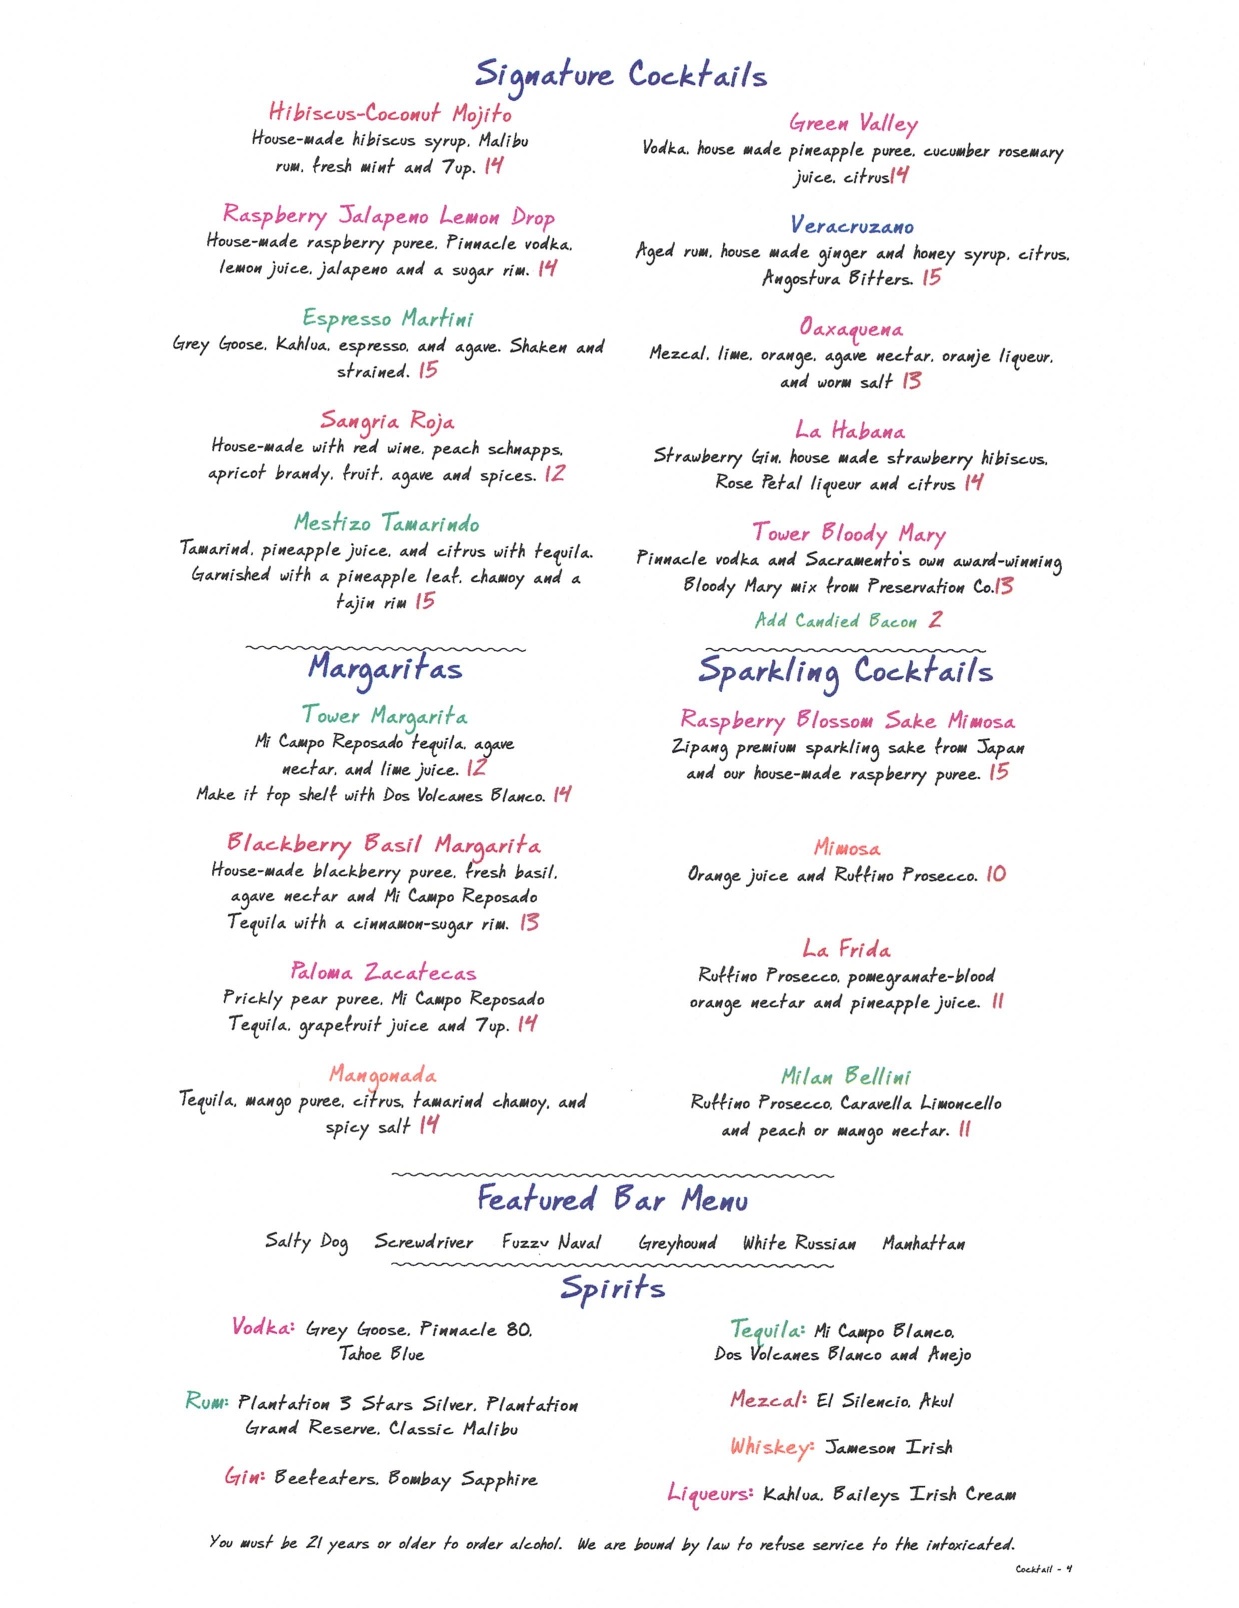 Signature Cocktails
Hibiscus-Coconut Mojito
House-made hibiscus syrup, Malibu
rum, fresh mint and 7up. 14
Raspberry Jalapeno Lemon Drop
House-made raspberry puree, Pinnacle vodka,
lemon juice, jalapeno and a sugar rim. 14
Espresso Martini
Grey Goose, Kahlua, espresso, and agave. Shaken and
strained. 15
Sangria Roja
House-made with red wine, peach schnapps,
apricot brandy, fruit, agave and spices. 12
Mestizo Tamarindo
Tamarind, pineapple juice, and citrus with tequila.
Garnished with a pineapple leaf, chamoy and a
tajin rim 15
Green Valley
Vodka, house made pineapple puree, cucumber rosemary
juice, citrus14
Veracruzano
Aged rum, house made ginger and honey syrup, citrus,
Angostura Bitters. 15
Oaxaquena
Mezcal, lime, orange, agave nectar, oranje liqueur,
and worm salt 13
La Habana
Strawberry Gin, house made strawberry hibiscus,
Rose Petal liqueur and citrus 14
Tower Bloody Mary
Pinnacle vodka and Sacramento's own award-winning
Bloody Mary mix from Preservation Co.13
Add Candied Bacon 2
Margaritas
Tower Margarita
Mi Campo Reposado tequila, agave
nectar, and lime juice. 12
Make it top shelf with Dos Volcanes Blanco. 14
Blackberry Basil Margarita
House-made blackberry puree, fresh basil,
agave nectar and Mi Campo Reposado
Tequila with a cinnamon-sugar rim. 13
Paloma Zacatecas
Prickly pear puree, Mi Campo Reposado
Tequila, grapefruit juice and 7up. 14
Mangonada
Tequila, mango puree, citrus, tamarind chamoy, and
spicy salt 14
Sparkling Cocktails
Raspberry Blossom Sake Mimosa
Zipang premium sparkling sake from Japan
and our house-made raspberry puree. 15
Mimosa
Orange juice and Ruffino Prosecco. 10
La Frida
Ruffino Prosecco, pomegranate-blood
orange nectar and pineapple juice. 11
Milan Bellini
Ruffino Prosecco, Caravella Limoncello
and peach or mango nectar. 11
Featured Bar Menu
Salty Dog Screwdriver Fuzzy Naval Greyhound White Russian Manhattan
Spirits
Vodka: Grey Goose, Pinnacle 80,
Tahoe Blue
Rum: Plantation 3 Stars Silver, Plantation
Grand Reserve, Classic Malibu
Gin: Beefeaters, Bombay Sapphire
Tequila: Mi Campo Blanco,
Dos Volcanes Blanco and Anejo
Mezcal: El Silencio, Akul
Whiskey: Jameson Irish
Liqueurs: Kahlua, Baileys Irish Cream
You must be 21 years or older to order alcohol. We are bound by law to refuse service to the intoxicated.
Cocktail - 4